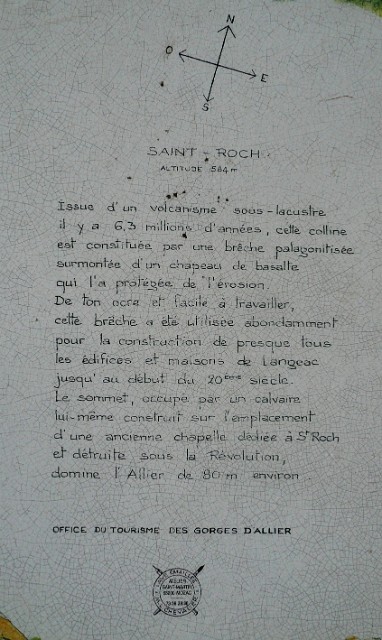 N
O
E
S
SAINT - ROCH
ALTITUDE 584 m
Issue d'un volcanisme sous-lacustre
il y a 6,3 millions d'années, cette colline
est constituée par une brêche palagonitisée
surmontée d'un chapeau de basalte
qui l'a protégée de l'érosion.
De ton ocre et facile à travailler,
cette brêche a été utilisée abondamment
pour la construction de presque tous
les édifices et maisons de Langeac
jusqu'au début du 20ème siècle.
Le sommet, occupé par un calvaire
lui-même construit sur l'emplacement
d'une ancienne chapelle dédiée à St Roch
et détruite sous la Révolution,
domine l'Allier de 80 m environ
OFFICE DU TOURISME DES GORGES D'ALLIER